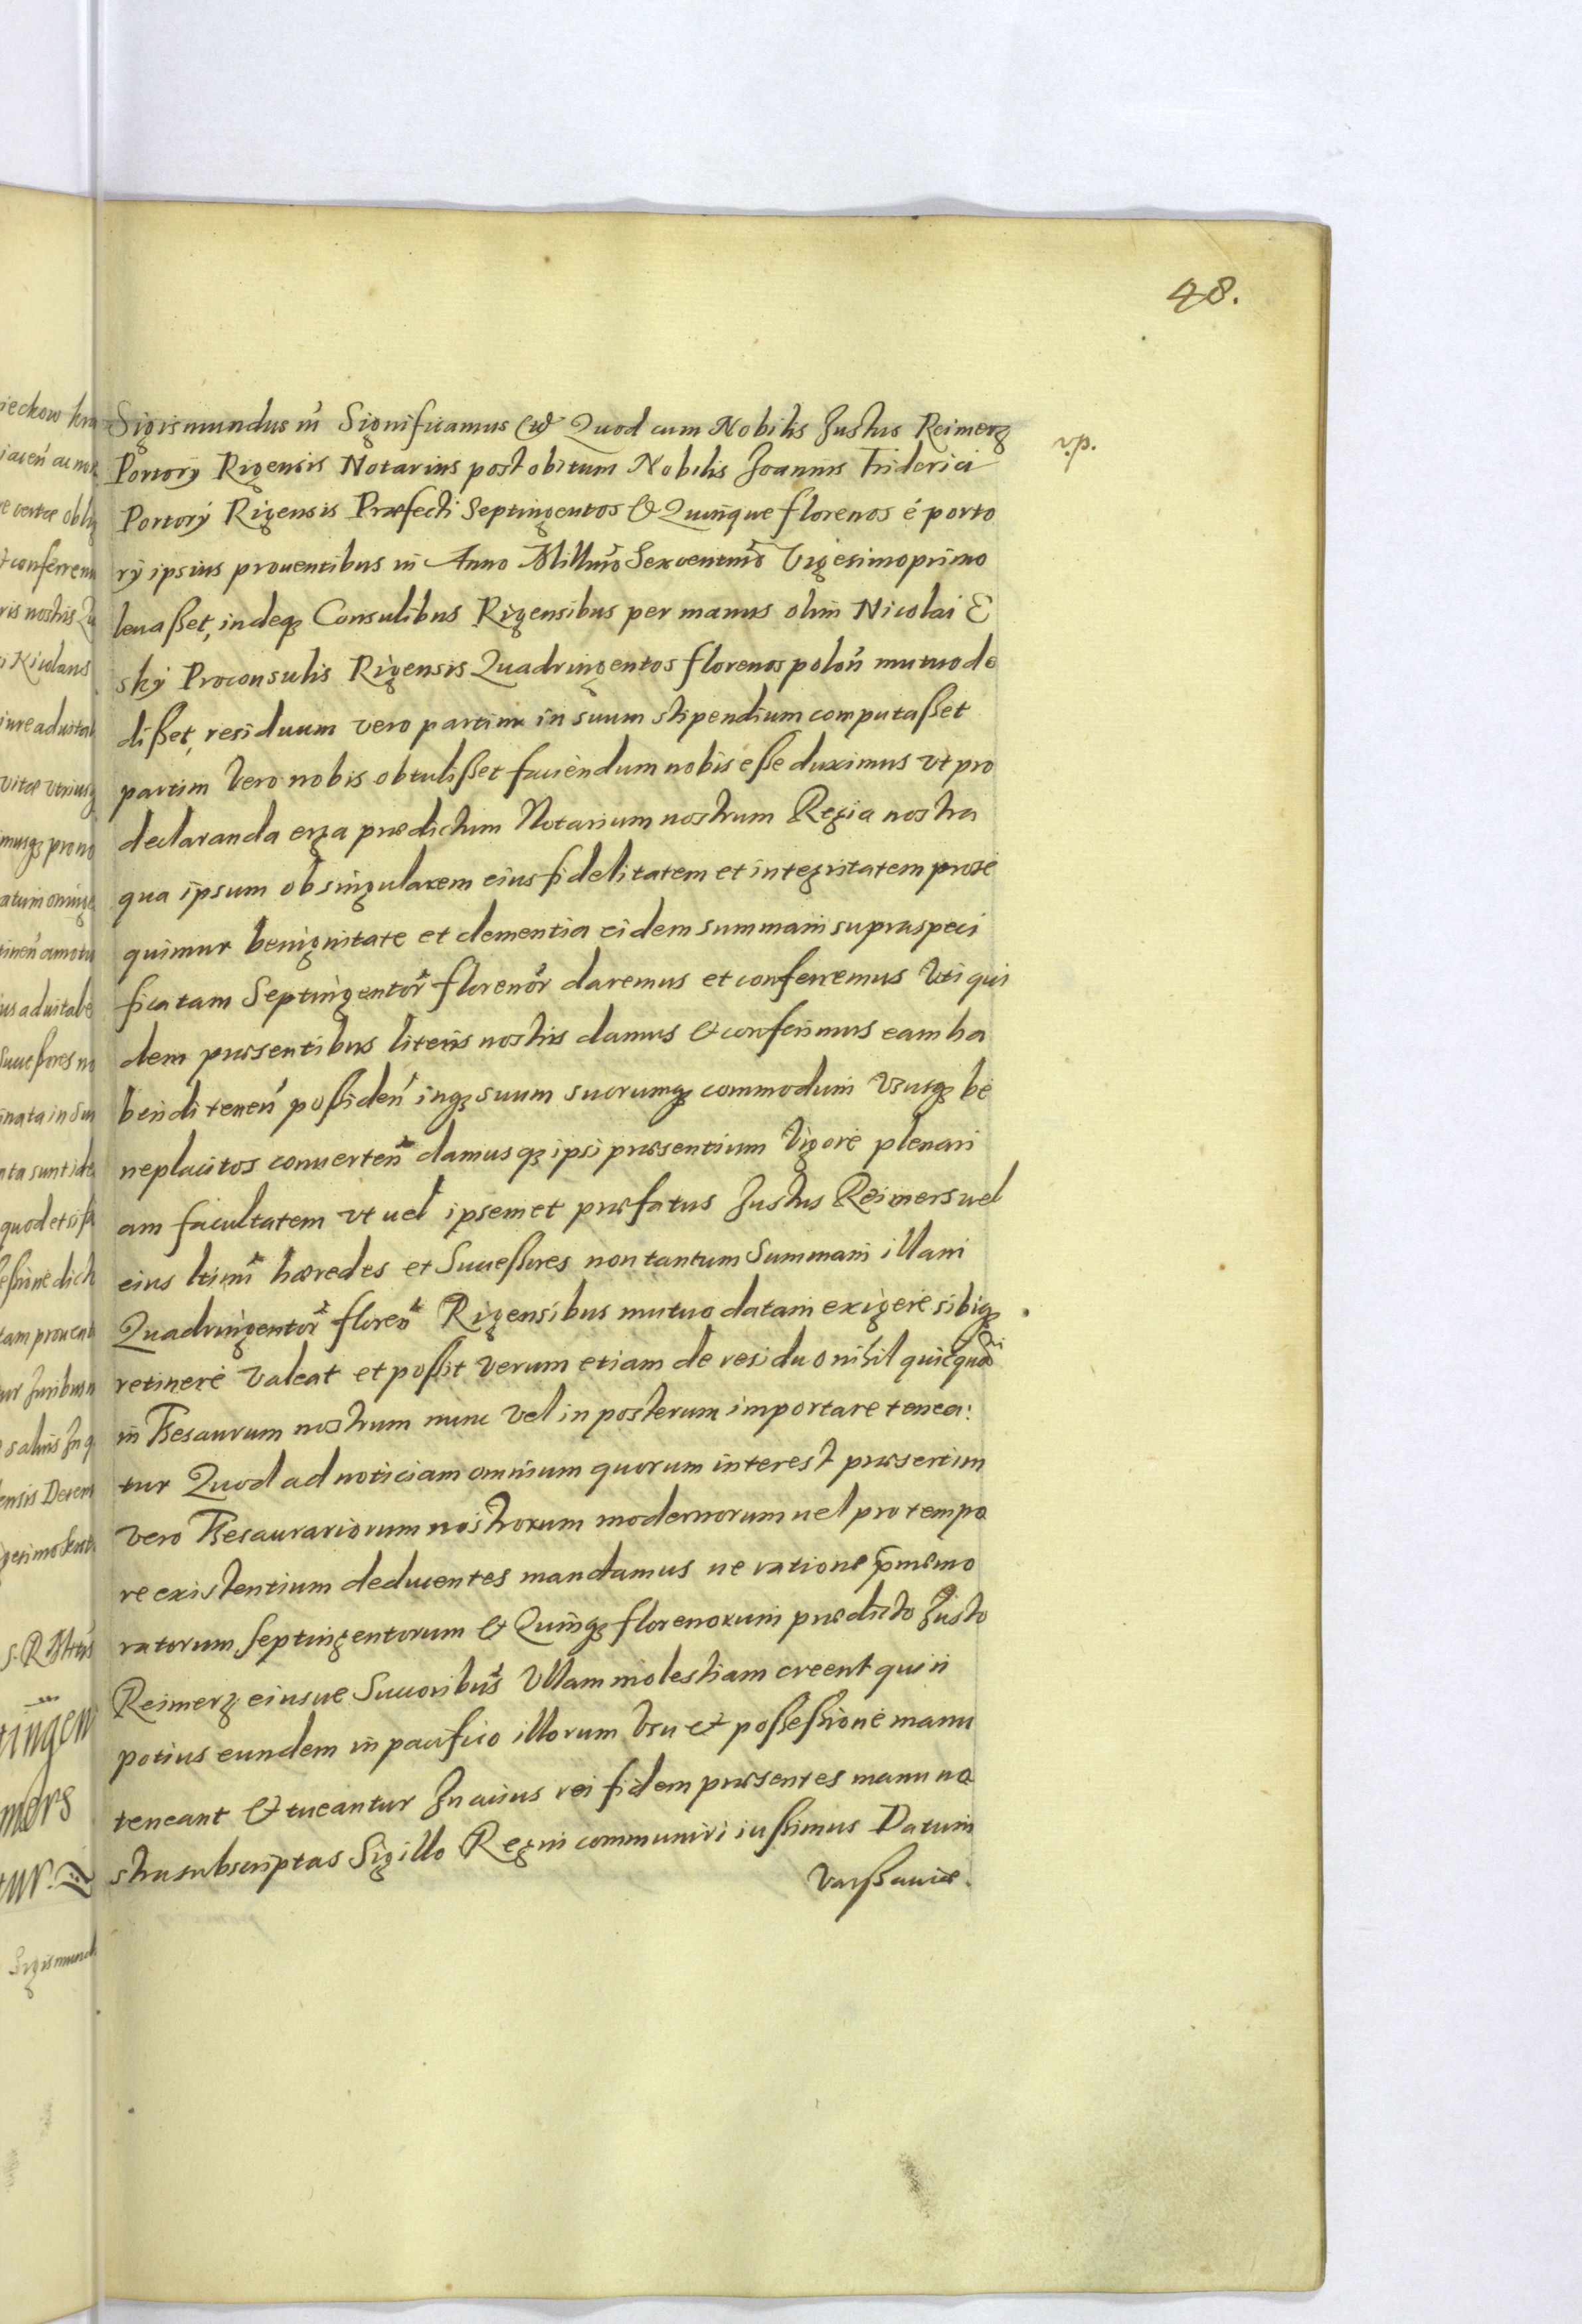 48.
Sigismundus III Significamus &c Quod cum Nobilis Justus Reimerz
v.p.
Portorÿ Rigensis Notarius post obitum Nobilis Joannis Friderici
Portorÿ Rigensis Præfecti Septingentos & Quinque florenos é porto
rÿ ipsius prouentibus in Anno Millmo Sexcentmo Vigesimoprimo
leuaßet, indeq3 Consulibus Rigensibus per manus olim Nicolai E
kÿ Proconsulis Rigensis Quadringentos florenos polon mutuo de
dißet, residuum vero partim in suum stipendium computaßet
partim Vero nobis obtulißet faciendum nobis eße duximus vt pro
declaranda erga prædictum Notarium nostrum Regia nostra
qua ipsum ob singularem eius fidelitatem et integritatem prose
quimur benignitate et clementia eidem summam supraspeci
ficatam Septingentor florenor daremus et conferremus Vti qui
dem præsentibus literis nostris damus & conferimus eam ha
bendi tenen poßiden inq3 suum suorumq3 commodum Vsusq3 be
neplacitos conuerten damusq3 ipsi præsentium Vigore plenari
am facultatem vt uel ipsemet præfatus Justus Reimers uel
eius ltimi hæredes et Succeßores non tantum Summam illam
Quadringentor floreo Rigensibus mutuo datam exigere sibiq3
retinere Valeat et poßit verum etiam de residuo nihil quicquam
in Thesaurum nostrum nunc Vel in posterum importare tenea:
tur Quod ad noticiam omnium quorum interest præsertim
vero Thesaurariorum nostrorum modernorum uel pro tempo
re existentium deducentes mandamus ne ratione præmemo
ratorum Septingentorum & Quinq3 florenorum prædicto Justo
Reimerz eiusue Succoribus Vllam molestiam creent quin
potius eundem in pacifico illorum Vsu et poßeßione manu
teneant & tueantur In cuius rei fidem præsentes manu no
stra subscriptas Sigillo Regni communiri iußimus Datum
Varßauiæ.